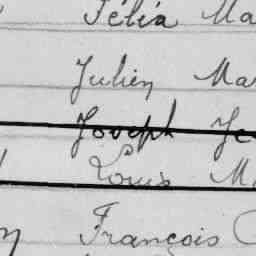 Félia Ma
Julien Mar
Joseph Je
Louis M
François